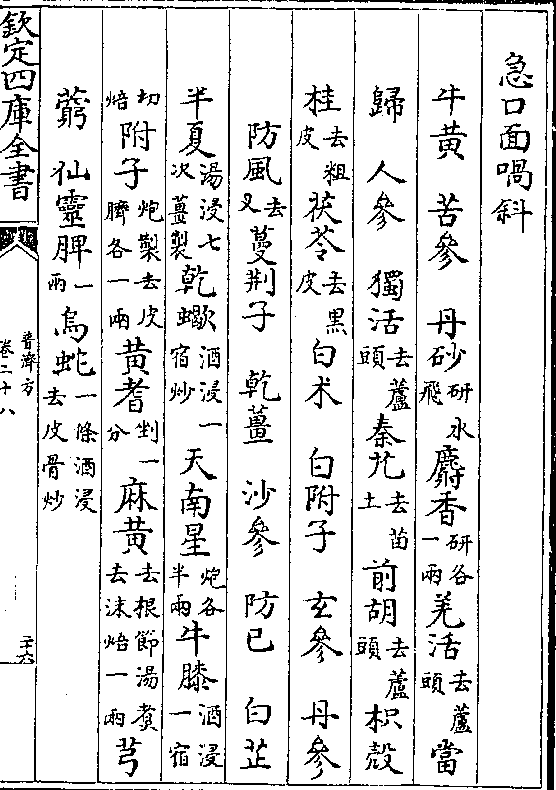 急口面喎斜
牛黄 苦參 丹砂研水飛 麝香研各一兩 羌活去蘆頭 當
歸 人參 獨活去蘆頭 秦艽去苗土 前胡去蘆頭 枳殼
桂去粗皮 茯苓去黑皮 白朮 白附子 玄參 丹參
防風去叉 蔓荆子 乾薑 沙參 防已 白芷
半夏湯浸七次薑製 乾蠍酒浸一宿炒 天南星炮各半兩 牛膝酒浸一宿
切焙 附子炮製去皮臍各一兩 黄耆剉一分 麻黄去根節湯煑去沫焙一兩 芎
藭 仙靈脾一兩 烏蛇一條酒浸去皮骨炒
欽定四庫全書
普濟方
卷二十八
二十六